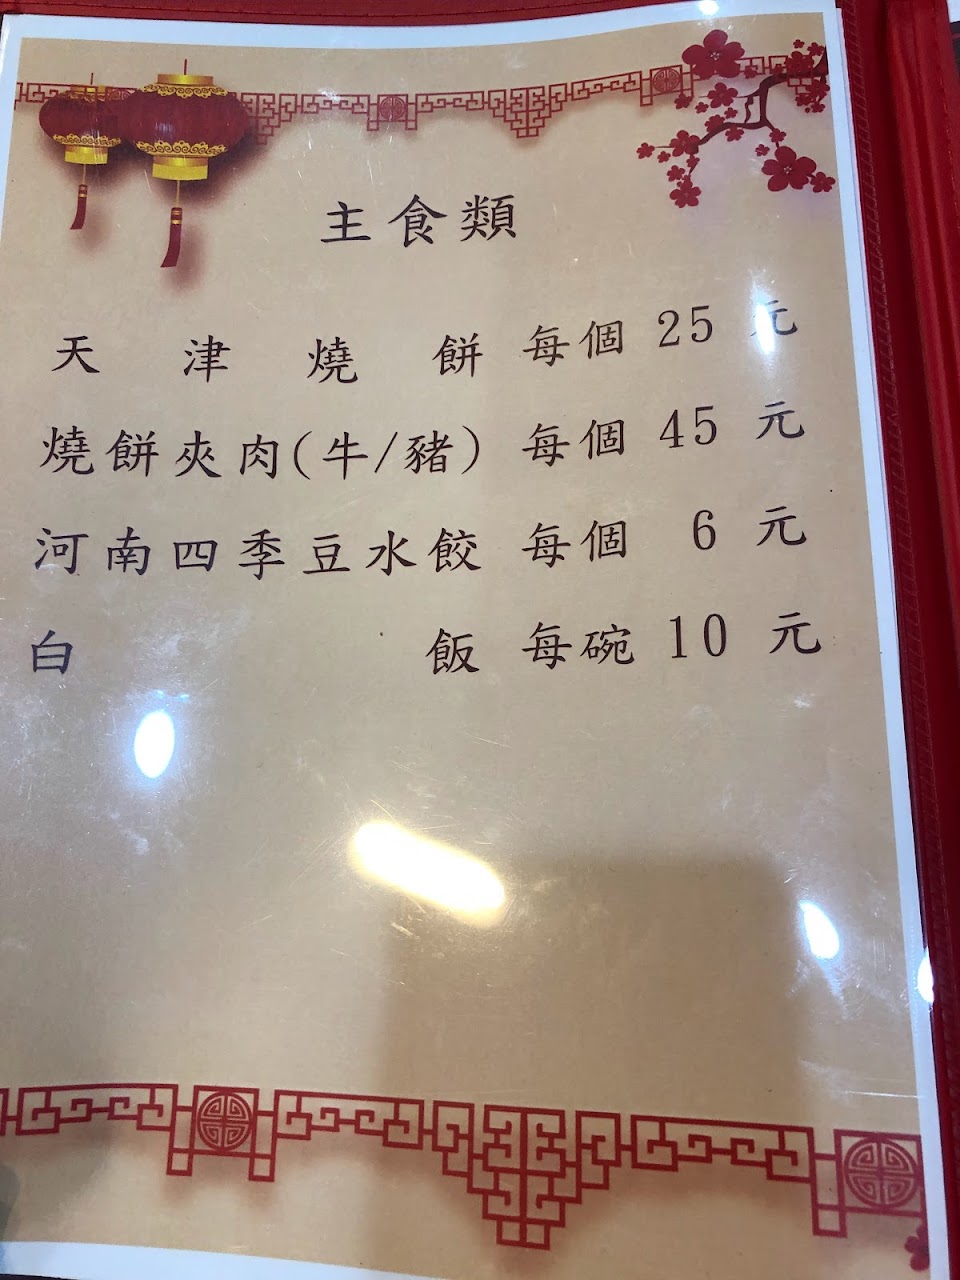 主食類
天津燒餅 每個 25 元
燒餅夾肉(牛/豬) 每個 45 元
河南四季豆水餃 每個 6 元
白飯 每碗 10 元